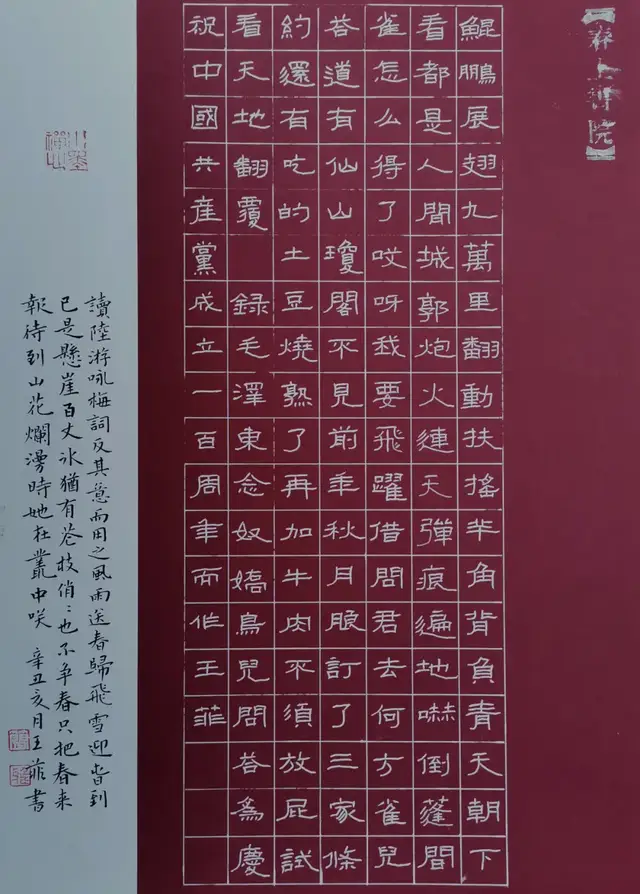 書院】
鯤鵬展翅九萬里翻動扶搖羊角背負青天朝下
看都是人間城郭炮火連天彈痕遍地嚇倒蓬間
雀怎么得了哎呀我要飛躍借問君去何方雀兒
答道有仙山瓊閣不見前年秋月朖訂了三家條
約還有吃的土豆燒熟了再加牛肉不須放屁試
看天地翻覆 録毛澤東念奴嬌鳥兒問答為慶
祝中國共産黨成立一百周年而作王菲
讀陸游咏梅詞反其意而用之風雨送春歸飛雪迎春到
已是懸崖百丈冰猶有花枝俏〻也不争春只把春来
報待到山花爛漫時她在叢中咲 辛丑亥月王菲書